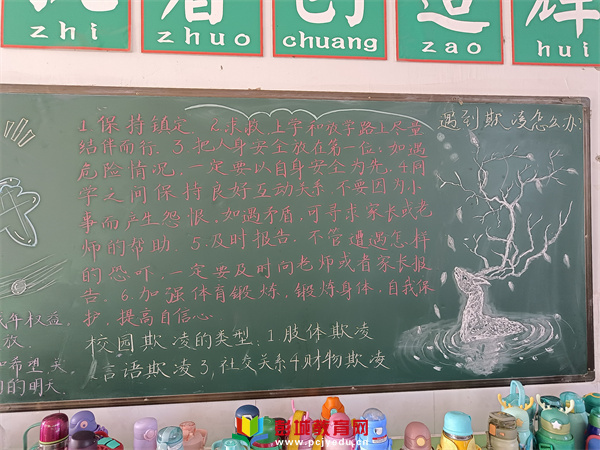 执着创造辉
zhi zhuo chuang zao hui
遇到欺凌怎么办
1保持镇定. 2.求救,上学和放学路上尽量
结伴而行. 3.把人身安全放在第一位:如遇
危险情况,一定要以自身安全为先. 4.同
学之间保持良好互动关系,不要因为小
事而产生怨恨,如遇矛盾,可寻求家长或老
师的帮助. 5.及时报告.不管遭遇怎样
的恐吓,一定要及时向老师或者家长报
告. 6.加强体育锻炼,锻炼身体,自我保
护 提高自信心.
校园欺凌的类型:1肢体欺凌
言语欺凌3,社交关系4财物欺凌
年权益,
放.
和希望
们的明天.
彭城教育网
www.pcjyedu.cn